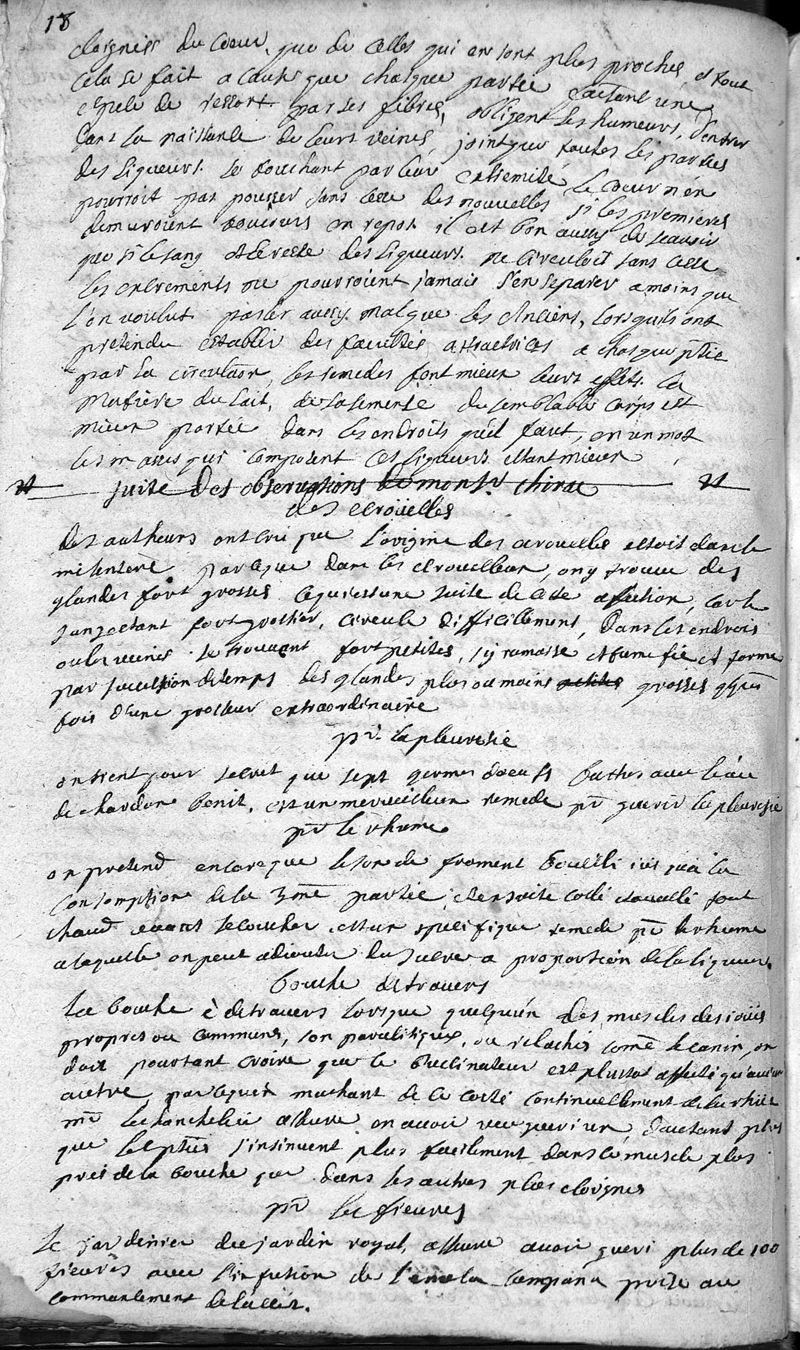 18
eloignies du coeur, que de celles qui en sont plus proches, et tout
cela se fait a cause que chasque partie faisant une
espece de ressort par ses fibres, obligent les humeurs, d'entrer
dans la naissance de leurs veines, joint que toutes les parties
des liqueurs se touchant par leur extremité, le coeur n'en
pourroit pas pousser sans cesse des nouvelles, si les premieres
demuroient toucours en repos. il est bon aussy de scavoir
que si le sang et le reste des liqueurs ne circuloit sans cesse
les excrements ne pourroient jamais s'en separer a moins que
l'on voulut parler aussy mal que les Anciens, lorsqu'ils ont
pretendu establir des facultés attractrices a chasque ptie
par la circulation, les remedes font mieux leurs effets. la
matiere du lait, de la semence du semblable corps est
mieux portée dans les endroits qu'il faut, en un mot
les masses qui composent ces liqueurs estant mieux
suite des observations de monsr. chirac
des ecrouelles
des autheurs ont cru que l'origine des ecrouelles estoit dans le
mesentere parceque dans les ecrouelleux, on y trouve des
glandes fort grosses ce qui est une suite de cette affection, car le
sang estant fort grossier, circule difficillement, dans les endrois
ou les veines se trouvant fort petites, s'y ramasse et tumefie et forme
par succession de temps des glandes plus ou moins petites grosses qques
fois d'une grosseur extraordinaire
pr. la pleuresie
on tient pour secret que sept germes doeufs battus avec l'eau
de chardon benit, est un merveilleux remede pr guerir la pleuresie
pr le rhume
on pretend encore que le son de froment bouilli jusqu'a la
consomption de la 3me partie, et ensuite collé et avallé tout
chaud avant se coucher est un specifique remede pr le rhume
a laquelle on peut adiouter du sucre a proportion de la liqueur.
bouche de travers
La bouche è de travers lorsque quelqu'un des muscles des joües
propres ou communs, son paralitiques, ou relachés come le canin, on
doit pourtant croire que le buccinateur est plustot affecté qu'aucun
autre parcequ'en machant de ce costé continuellement de la rhüe
mr assure en avoir veu guerir un d'autant plus
que les pties s'insinuent plus facilement dans le muscle plus
pres de la bouche que dans les autres plus eloignes
pr les fievres
Le jardinier du jardin royal, assure avoir gueri plus de 100
fievres avec l'infusion de l'enula campana prise au
commancement de l'accez.